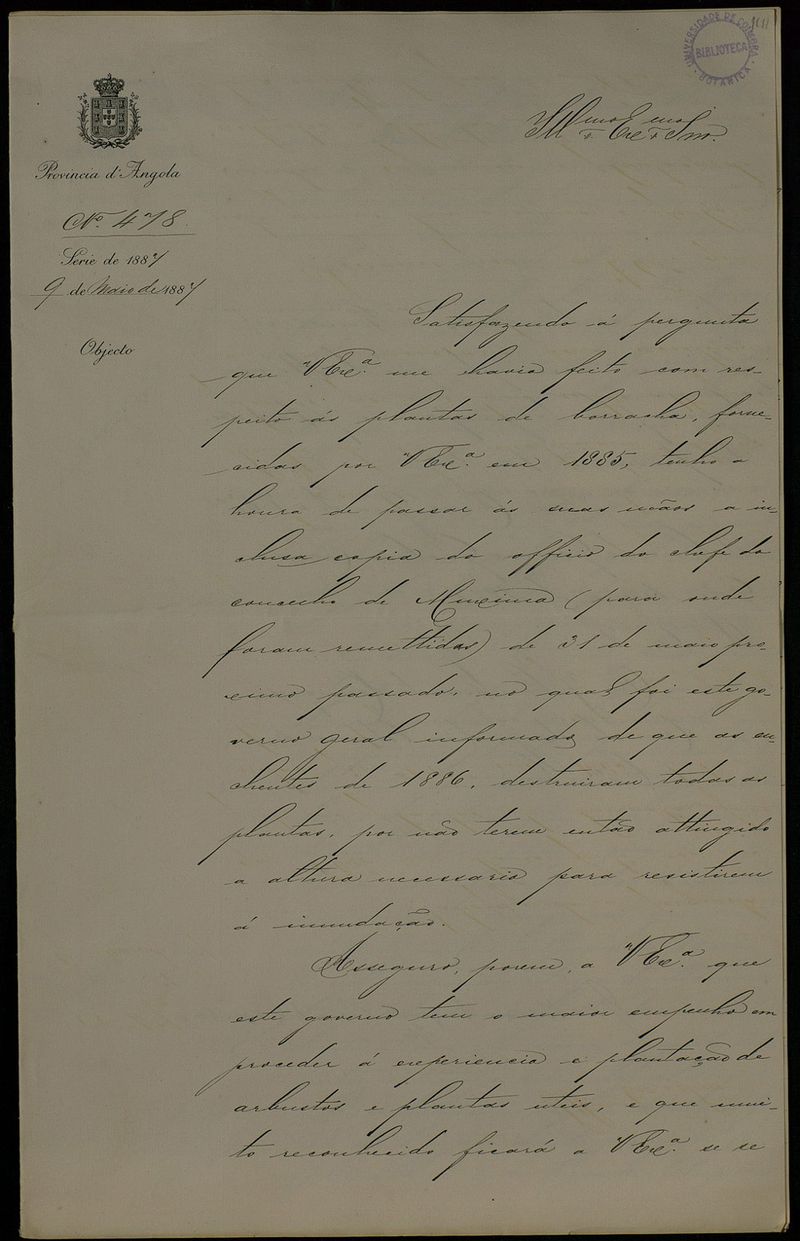 UNIVERSIDADE DE COIMBRA
BIBLIOTECA
BOTANICA
Illmo e Exmo Snr.
Provincia d'Angola
No. 478
Serie de 1887
9 de Maio de 1887
Objecto
Satisfazendo á pergunta
que V Exa. me havia feito com res-
peito ás plantas de borracha, forne-
cidas por V Exa. em 1885, tenho a
honra de passar ás suas mãos a in-
clusa copia do officio do chefe do
concelho de Muxima (para onde
foram remettidas) de 31 de maio pro-
ximo passado, no qual foi este go-
verno geral informado, de que as en-
chentes de 1886, destruiram todas as
plantas, por não terem então attingido
a altura necessaria para resistirem
á inundação.
Asseguro, porem, a V Exa. que
este governo tem o maior empenho em
proceder á experiencia e plantação de
arbustos e plantas uteis, e que mui-
to reconhecido ficará a V Exa. se se